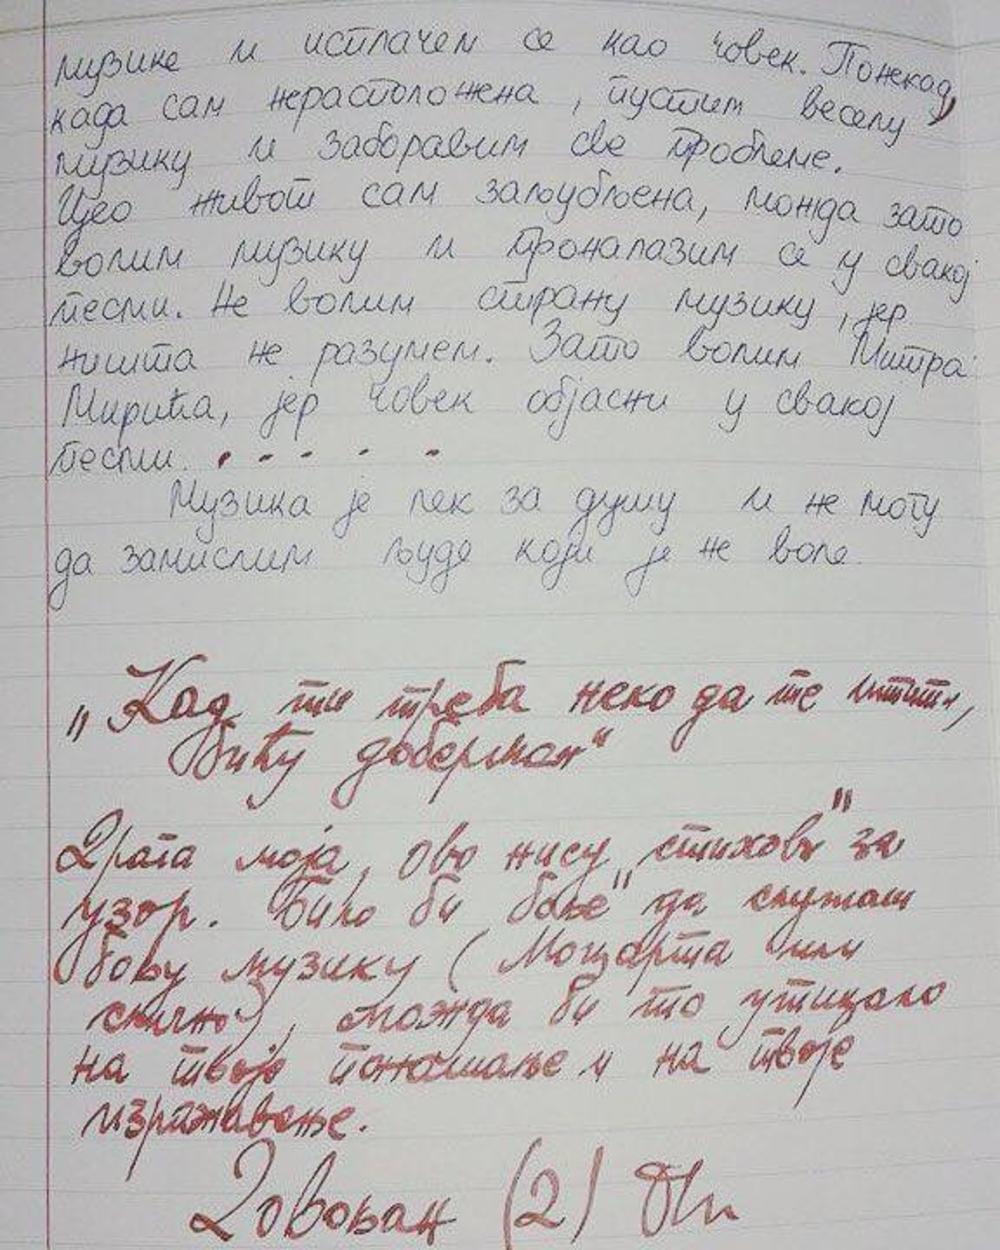 музике и исплачем се као човек. Понекад,
када сам нерасположена, пустим веселу
музику и заборавим све проблеме.
Цео живот сам заљубљена, можда зато
волим музику и проналазим се у свакој
песми. Не волим страну музику, јер
ништа не разумем. Зато волим Митра
Мирића, јер човек објасни у свакој
песми.....
Музика је лек за душу и не могу
да замислим људе који је не воле.
„Кад ти треба неко да те штити,
бићу доберман“
Драга моја, ово нису „стихови" за
узор. Било би боље да слушаш
ову музику (Моцарта или
слично), можда би то утицало
на твоје понашање и на твоје
изражавање.
Довољан (2)